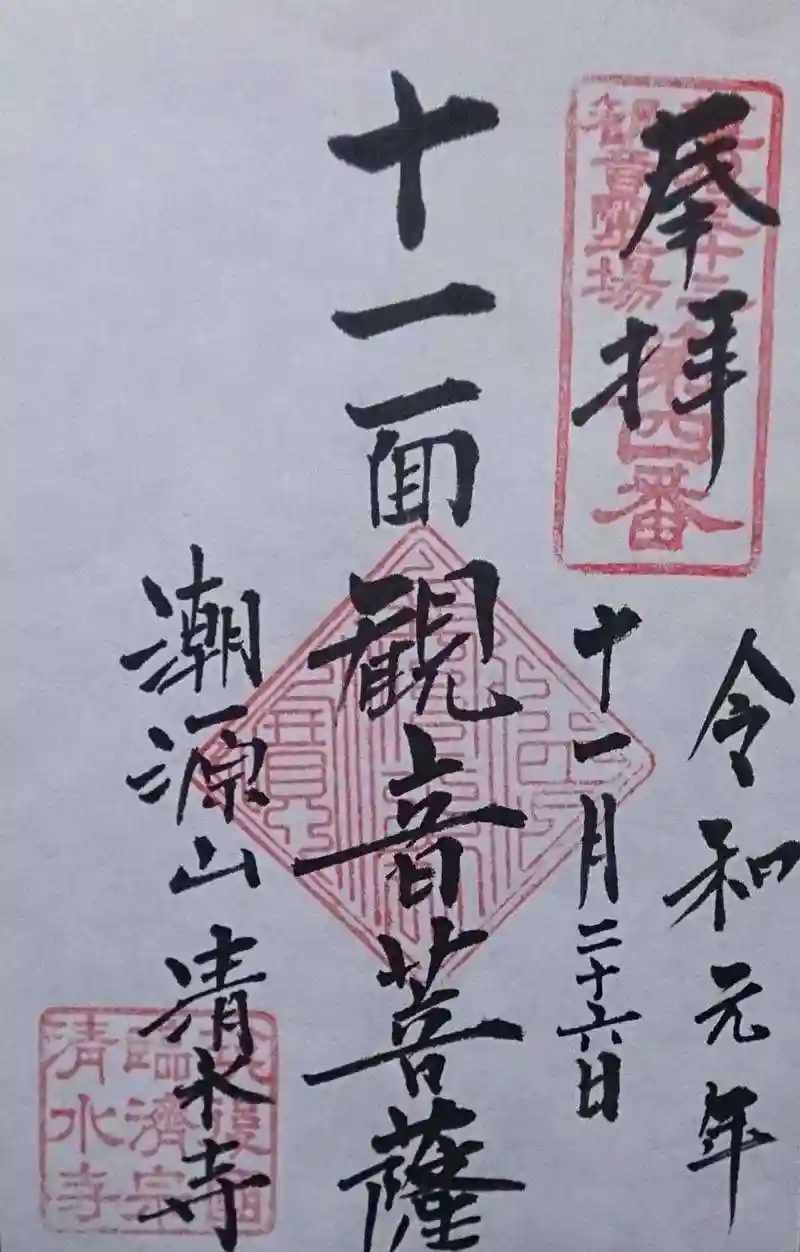 奉拝
令和元年
十一月二十六日
十一面観音菩薩
潮源山清水寺
観音霊場
第四番
臨済宗
清水寺